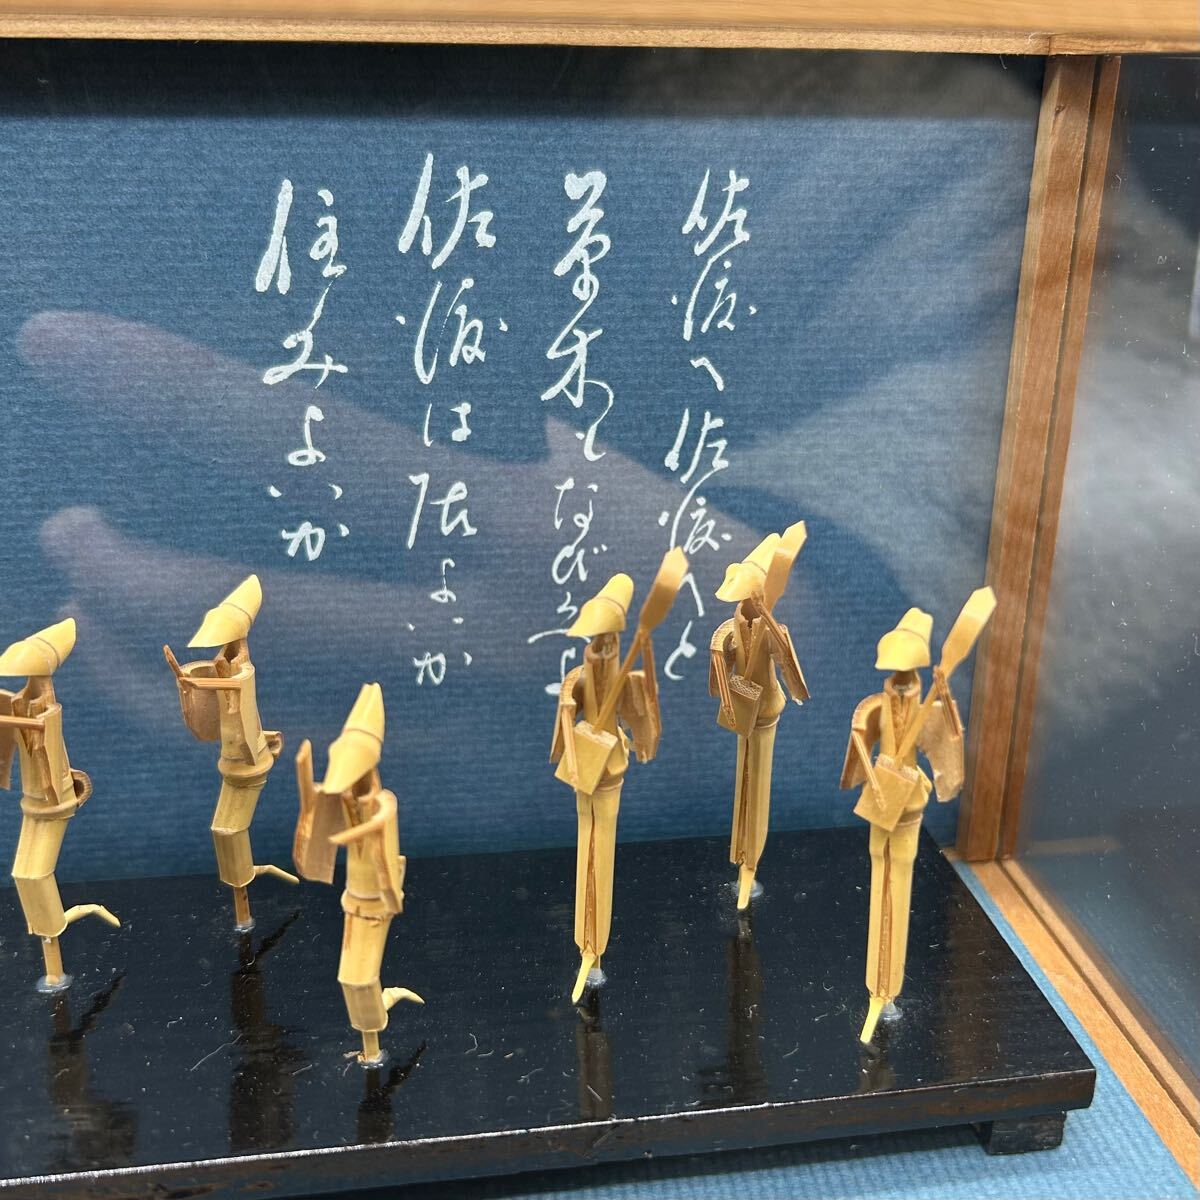 佐渡へ佐渡へと
草木もなびくよ
佐渡は居よいか
住みよいか